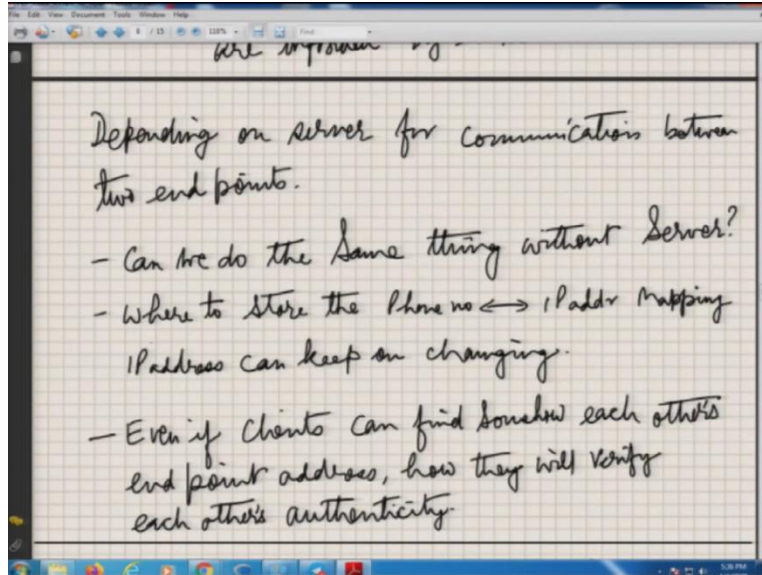 File Edit View Document Tools Window Help
8 / 15 110% Find
are by
Depending on server for communication between
two end points.
- Can we do the Same thing without Server?
- where to Store the Phone no ↔ IPaddr Mapping
IPaddress can keep on changing.
- Even if Clients can find Somehow each other's
end point address, how they will verify
each other's authenticity.
5:36 PM